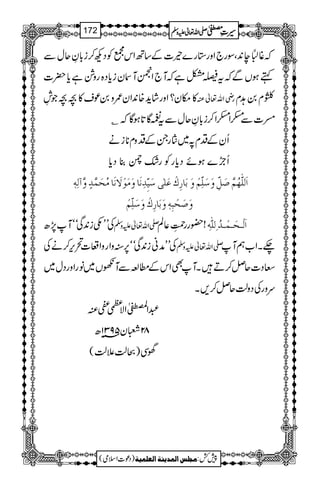 سیرتِ مصطفیٰ صلی اللہ تعالیٰ علیہ وسلم 172
کہ غالباً چاند، سورج اور ستارے حیرت کے ساتھ اس مجمع کو دیکھ کر زبانِ حال سے
کہتے ہوں گے کہ یہ فیصلہ مشکل ہے کہ آج انجمن آسمان زیادہ روشن ہے یا بے حضرت
کلثوم بن رضی اللہ تعالیٰ عنہ کا مکان؟ اور شاید خاندان عمرو بن عوف کا بچہ بچہ جوشِ
مسرت سے مسکرا مسکرا کر زبانِ حال سے یہ نغمہ گاتا ہوگا کہ ؎
اُن کے قدم پہ میں نثار جن کے قدوم ناز نے
اُجڑے ہوئے دیار کو رشکِ چمن بنا دیا
اَللّٰهُمَّ صَلِّ وَ سَلِّمْ وَ بَارِكْ عَلٰى سَيِّدِنَا وَمَوْلَانَا مُحَمَّدٍ وَّاٰلِهٖ
وَصَحْبِهٖ وَ بَارِكْ وَ سَلِّمْ
اَلْحَمْدُ لِلّٰهِ! حضور رحمتِ عالم صلی اللہ تعالیٰ علیہ وسلم کی ”مکی زندگی“ آپ پڑھ
چکے۔ اب ہم آپ صلی اللہ تعالیٰ علیہ وسلم کی ”مدنی زندگی“ پر سنہ وار واقعات تحریر کرنے کی
سعادت حاصل کرتے ہیں۔ آپ بھی اس کے مطالعہ سے آنکھوں میں نور اور دل میں
سرور کی دولت حاصل کریں۔
عبدالمصطفیٰ الاعظمی عفی عنہ
۲۸ شعبان ۱۳۹۵ھ
گھوسی (بحالتِ علالت)
پیش کش: مجلس المدينة العلمية (دعوتِ اسلامی)